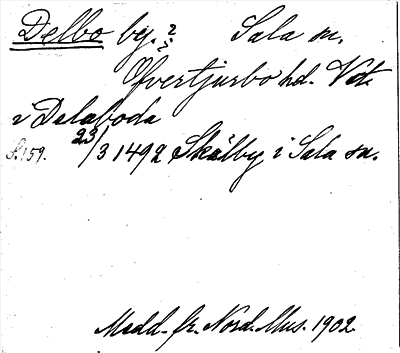 Delbo by. ? Sala sn.
Öfvertjurbo hd. Vstm.
v Delaboda
S. 159. 23/3 1492 Skälby i Sala sn.
Medd. fr. Nord. Mus. 1902.